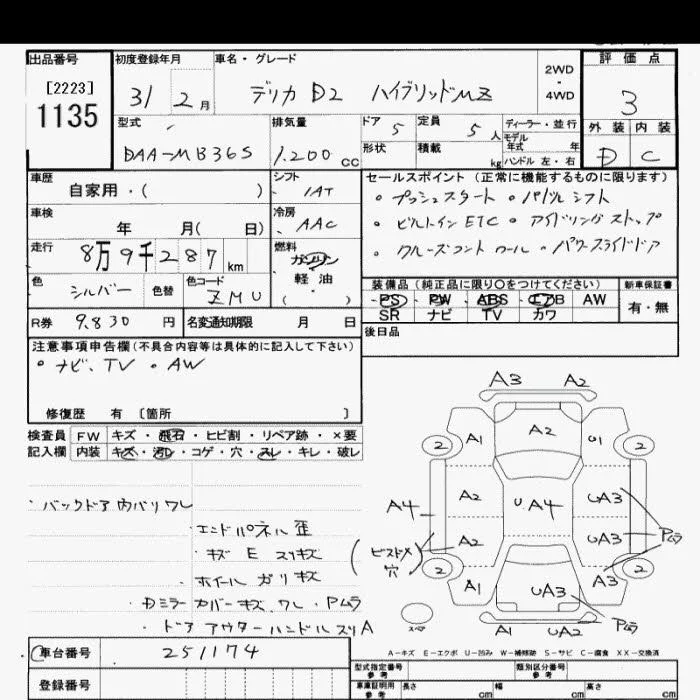 出品番号 初度登録年月 車名・グレード 2WD - 4WD 評価点
[2223]
1135
31 2月 デリカ D2 ハイブリッドMZ 3
型式 排気量 ドア 定員 ディーラー・並行 外装 内装
DAA-MB36S 1.200cc 5 5人 モデル年式 年 D C
形状 積載 kg ハンドル 左・右
車歴 シフト セールスポイント (正常に機能するものに限ります)
自家用・( ) IAT 。プッシュスタート 。パドルシフト
車検 冷房 。ビルトインETC 。アイドリングストップ
年 月( 日) AAC 。クルーズコントロール 。パワースライドドア
走行 燃料
8万9千287km ガソリン 軽油 ( )
装備品(純正品に限り○をつけてください) 新車保証書
色 シルバー 色替 色コード ZMU PS PW ABS エアB AW 有・無
SR ナビ TV カワ
R券 9.830円 名変通知期限 月 日 後日品
注意事項申告欄(不具合内容等は具体的に記入して下さい)
。ナビ、TV 。AW
修復歴 有 〔箇所 〕
検査員 FW キズ・飛石・ヒビ割・リペア跡・×要
記入欄 内装 キズ・汚レ・コゲ・穴・スレ・キレ・破レ
A3 A2
A1 A2 U1
2 2
A2 U A4 UA3
A4
A2 UA3 Pムラ
2 2
A1 UA3 A3
Pムラ
スペア A1 UA2
・バックドア内バリワレ
・エンドパネル歪
・キズ E スリキズ
(ビスドメ穴)
・ホイールガリキズ
・Dミラーカバーキズ、ワレ・Pムラ
・ドアアウターハンドルスリA
A-キズ E-エクボ U-凹み W-補修跡 S-サビ C-腐食 XX-交換済
車台番号 251174
型式指定番号 参考 類別区分番号 参考
登録番号 車庫証明用 参考 長さ cm 幅 cm 高さ cm